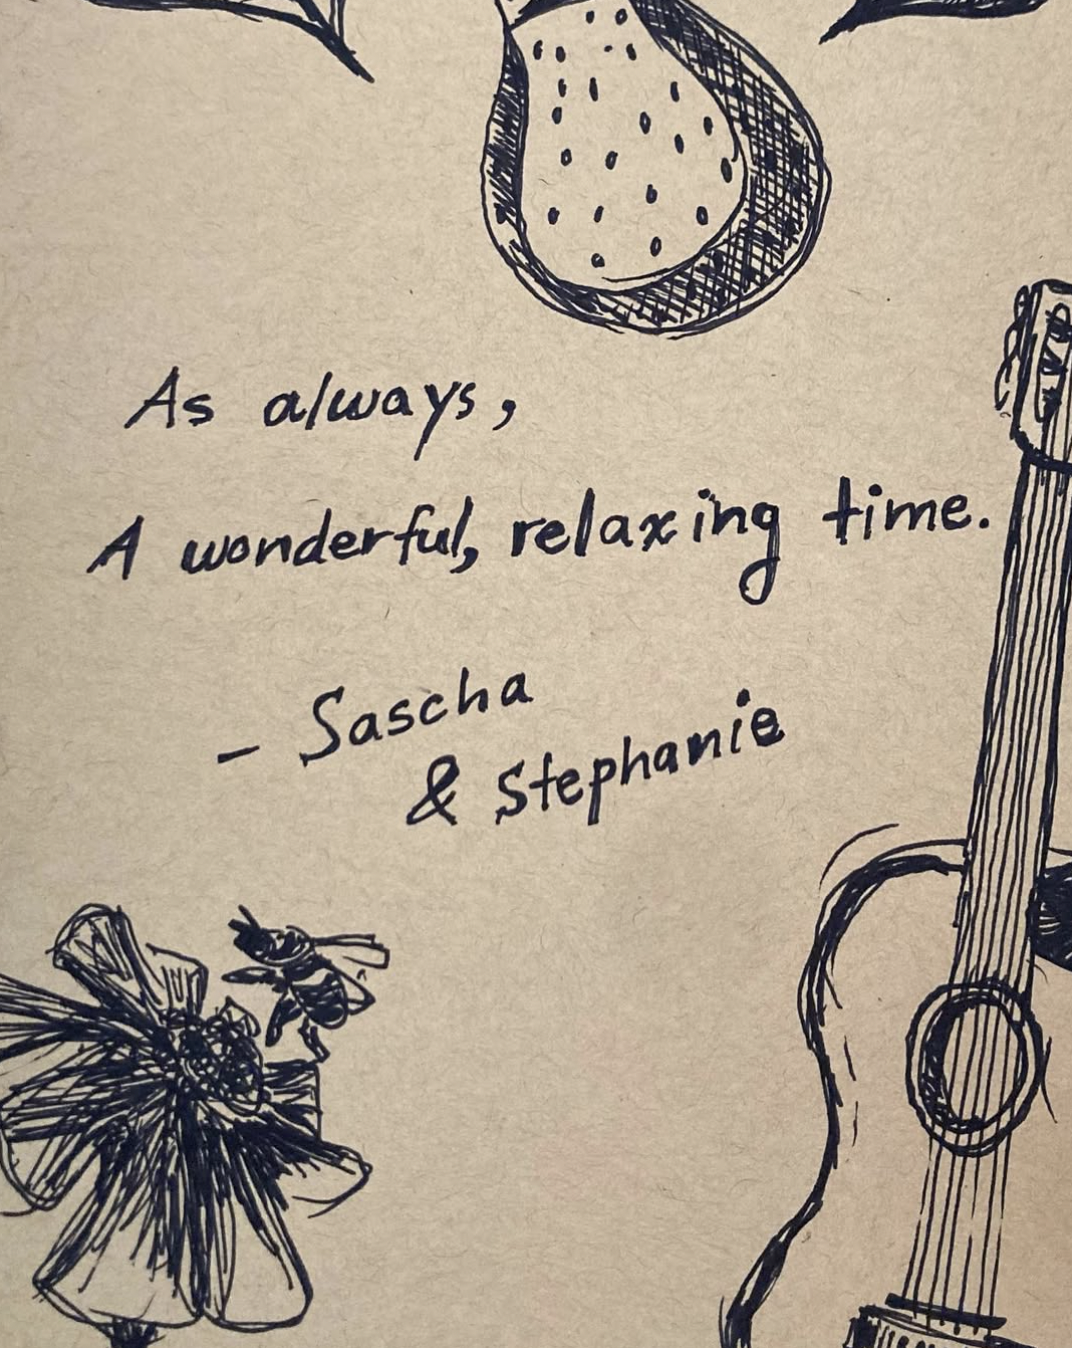 As always,
A wonderful, relaxing time.
- Sascha
& Stephanie